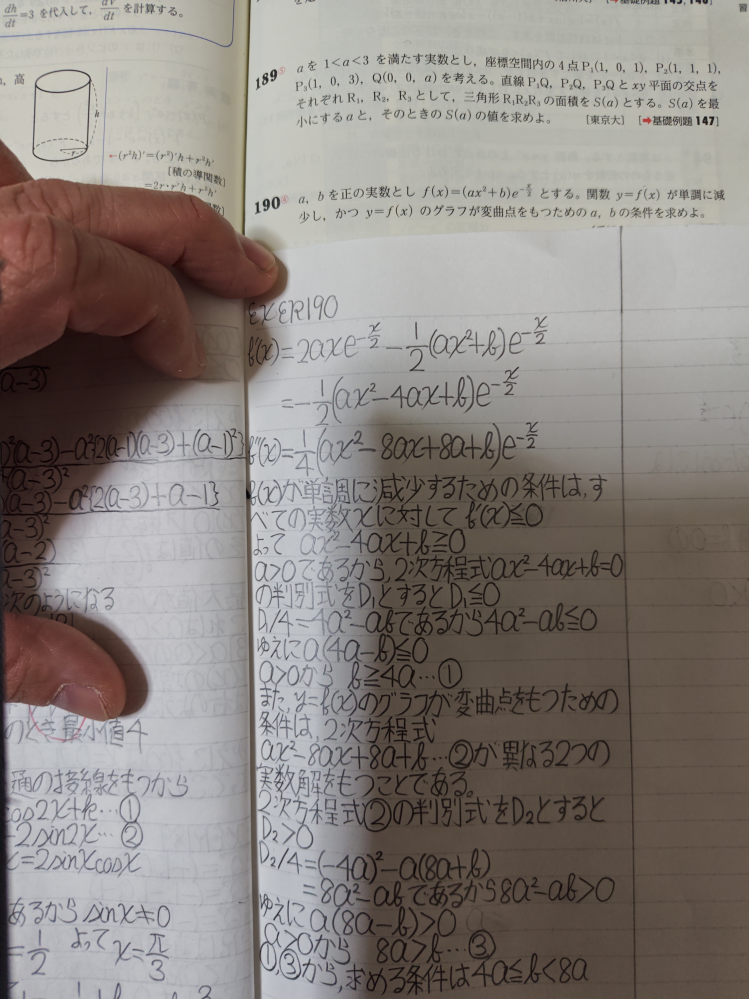 dh/dt=3 を代入して, dV/dt を計算する。
高
h
r
←(r²h)'=(r²)'h+r²h'
[積の導関数]
=2r・r'h+r²h'
189 aを 1<a<3 を満たす実数とし，座標空間内の4点P₁(1, 0, 1)，P₂(1, 1, 1)，
P₃(1, 0, 3)，Q(0, 0, a) を考える。直線P₁Q，P₂Q，P₃Q と xy 平面の交点を
それぞれR₁，R₂，R₃ として，三角形R₁R₂R₃ の面積をS(a)とする。S(a)を最
小にするaと，そのときのS(a)の値を求めよ。 [東京大] [➡基礎例題147]
190 a，b を正の実数とし f(x)=(ax²+b)e^{-x/2} とする。関数 y=f(x) が単調に減
少し，かつ y=f(x) のグラフが変曲点をもつための a，b の条件を求めよ。
EXER190
f'(x)=2axe^{-x/2}-1/2(ax²+b)e^{-x/2}
=-1/2(ax²-4ax+b)e^{-x/2}
f''(x)=1/4(ax²-8ax+8a+b)e^{-x/2}
f(x)が単調に減少するための条件は，す
べての実数xに対してf'(x)≦0
よって ax²-4ax+b≧0
a>0であるから，2次方程式ax²-4ax+b=0
の判別式をD₁とするとD₁≦0
D₁/4=4a²-abであるから4a²-ab≦0
ゆえにa(4a-b)≦0
a>0から b≧4a…①
また，y=f(x)のグラフが変曲点をもつための
条件は，2次方程式
ax²-8ax+8a+b…②が異なる2つの
実数解をもつことである。
2次方程式②の判別式をD₂とすると
D₂>0
D₂/4=(-4a)²-a(8a+b)
=8a²-abであるから8a²-ab>0
ゆえにa(8a-b)>0
a>0から 8a>b…③
①,③から，求める条件は4a≦b<8a
a-3)
)²(a-3)-a²{2(a-1)(a-3)+(a-1)²}
(a-3)²
(a-3)-a²{2(a-3)+a-1}
a-3)²
(a-2)
a-3)²
次のようになる
のとき最小値4
通の接線をもつから
cos2x+k…①
-2sin2x…②
x=2sinxcosx
あるから sinx≠0
=1/2 よって x=π/3